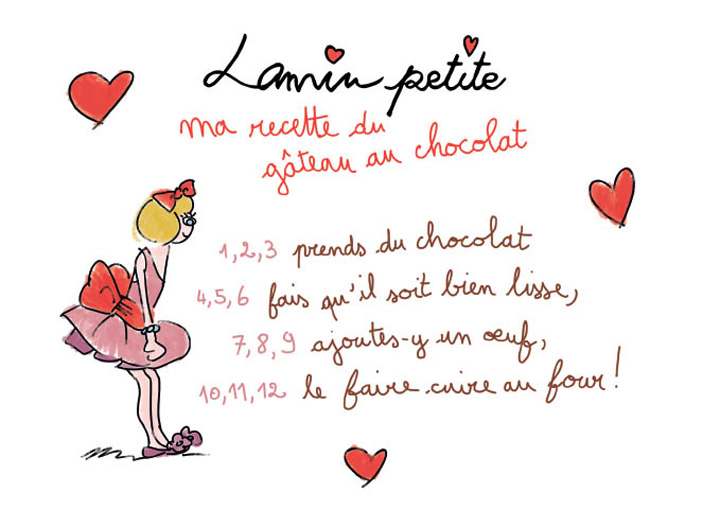 Lamin petite
ma recette du
gâteau au chocolat
1,2,3 prends du chocolat
4,5,6 fais qu'il soit bien lisse,
7,8,9 ajoutes-y un œuf,
10,11,12 le faire cuire au four!